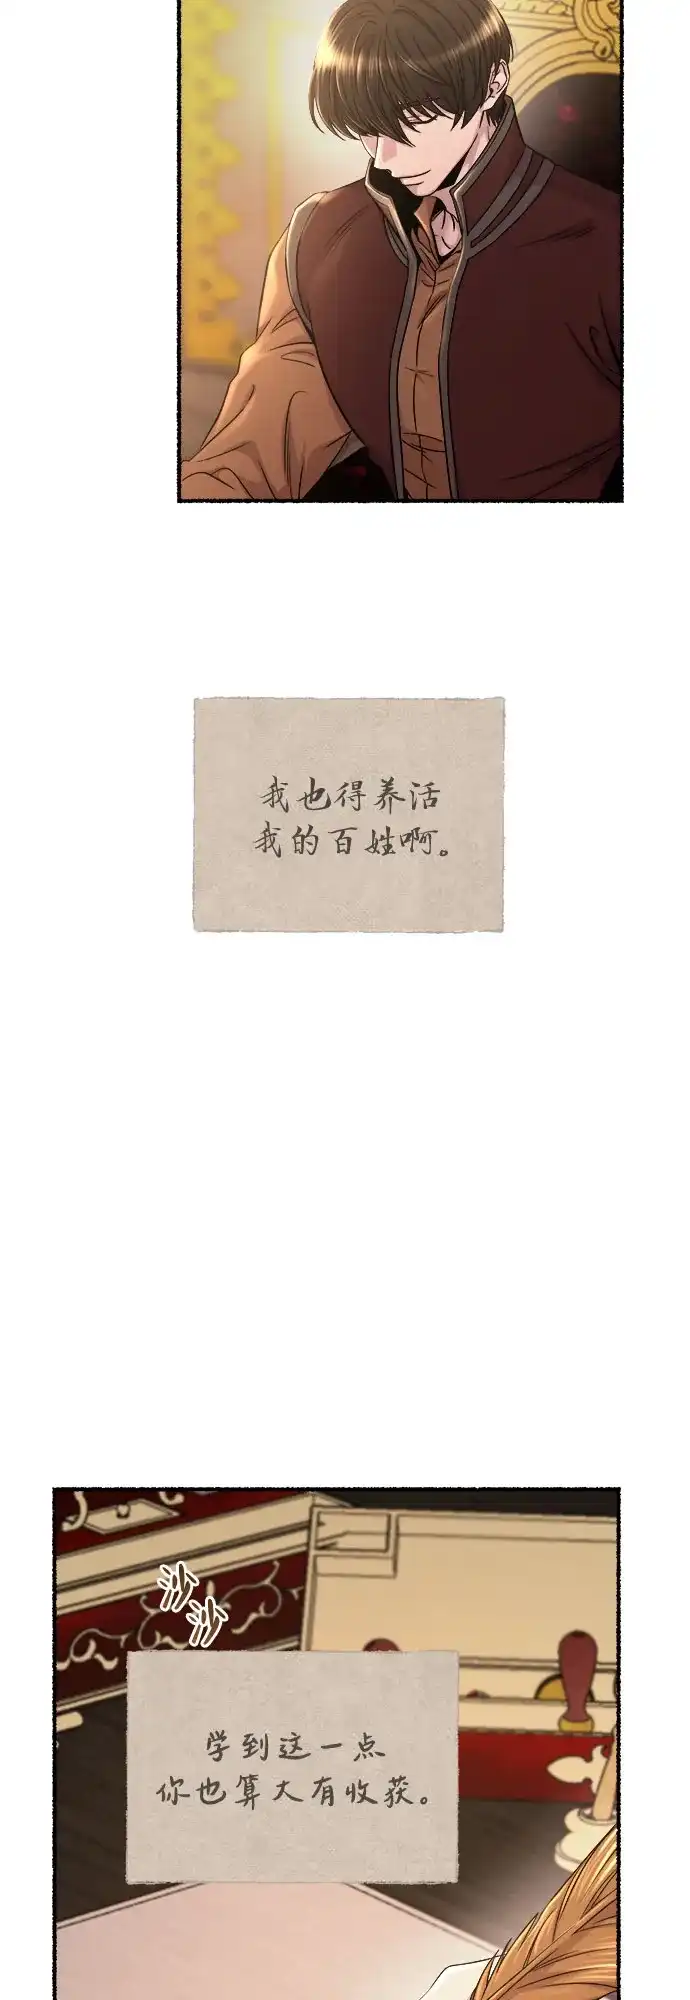 我也得养活
我的百姓啊。
沙沙
学到这一点
你也算大有收获。